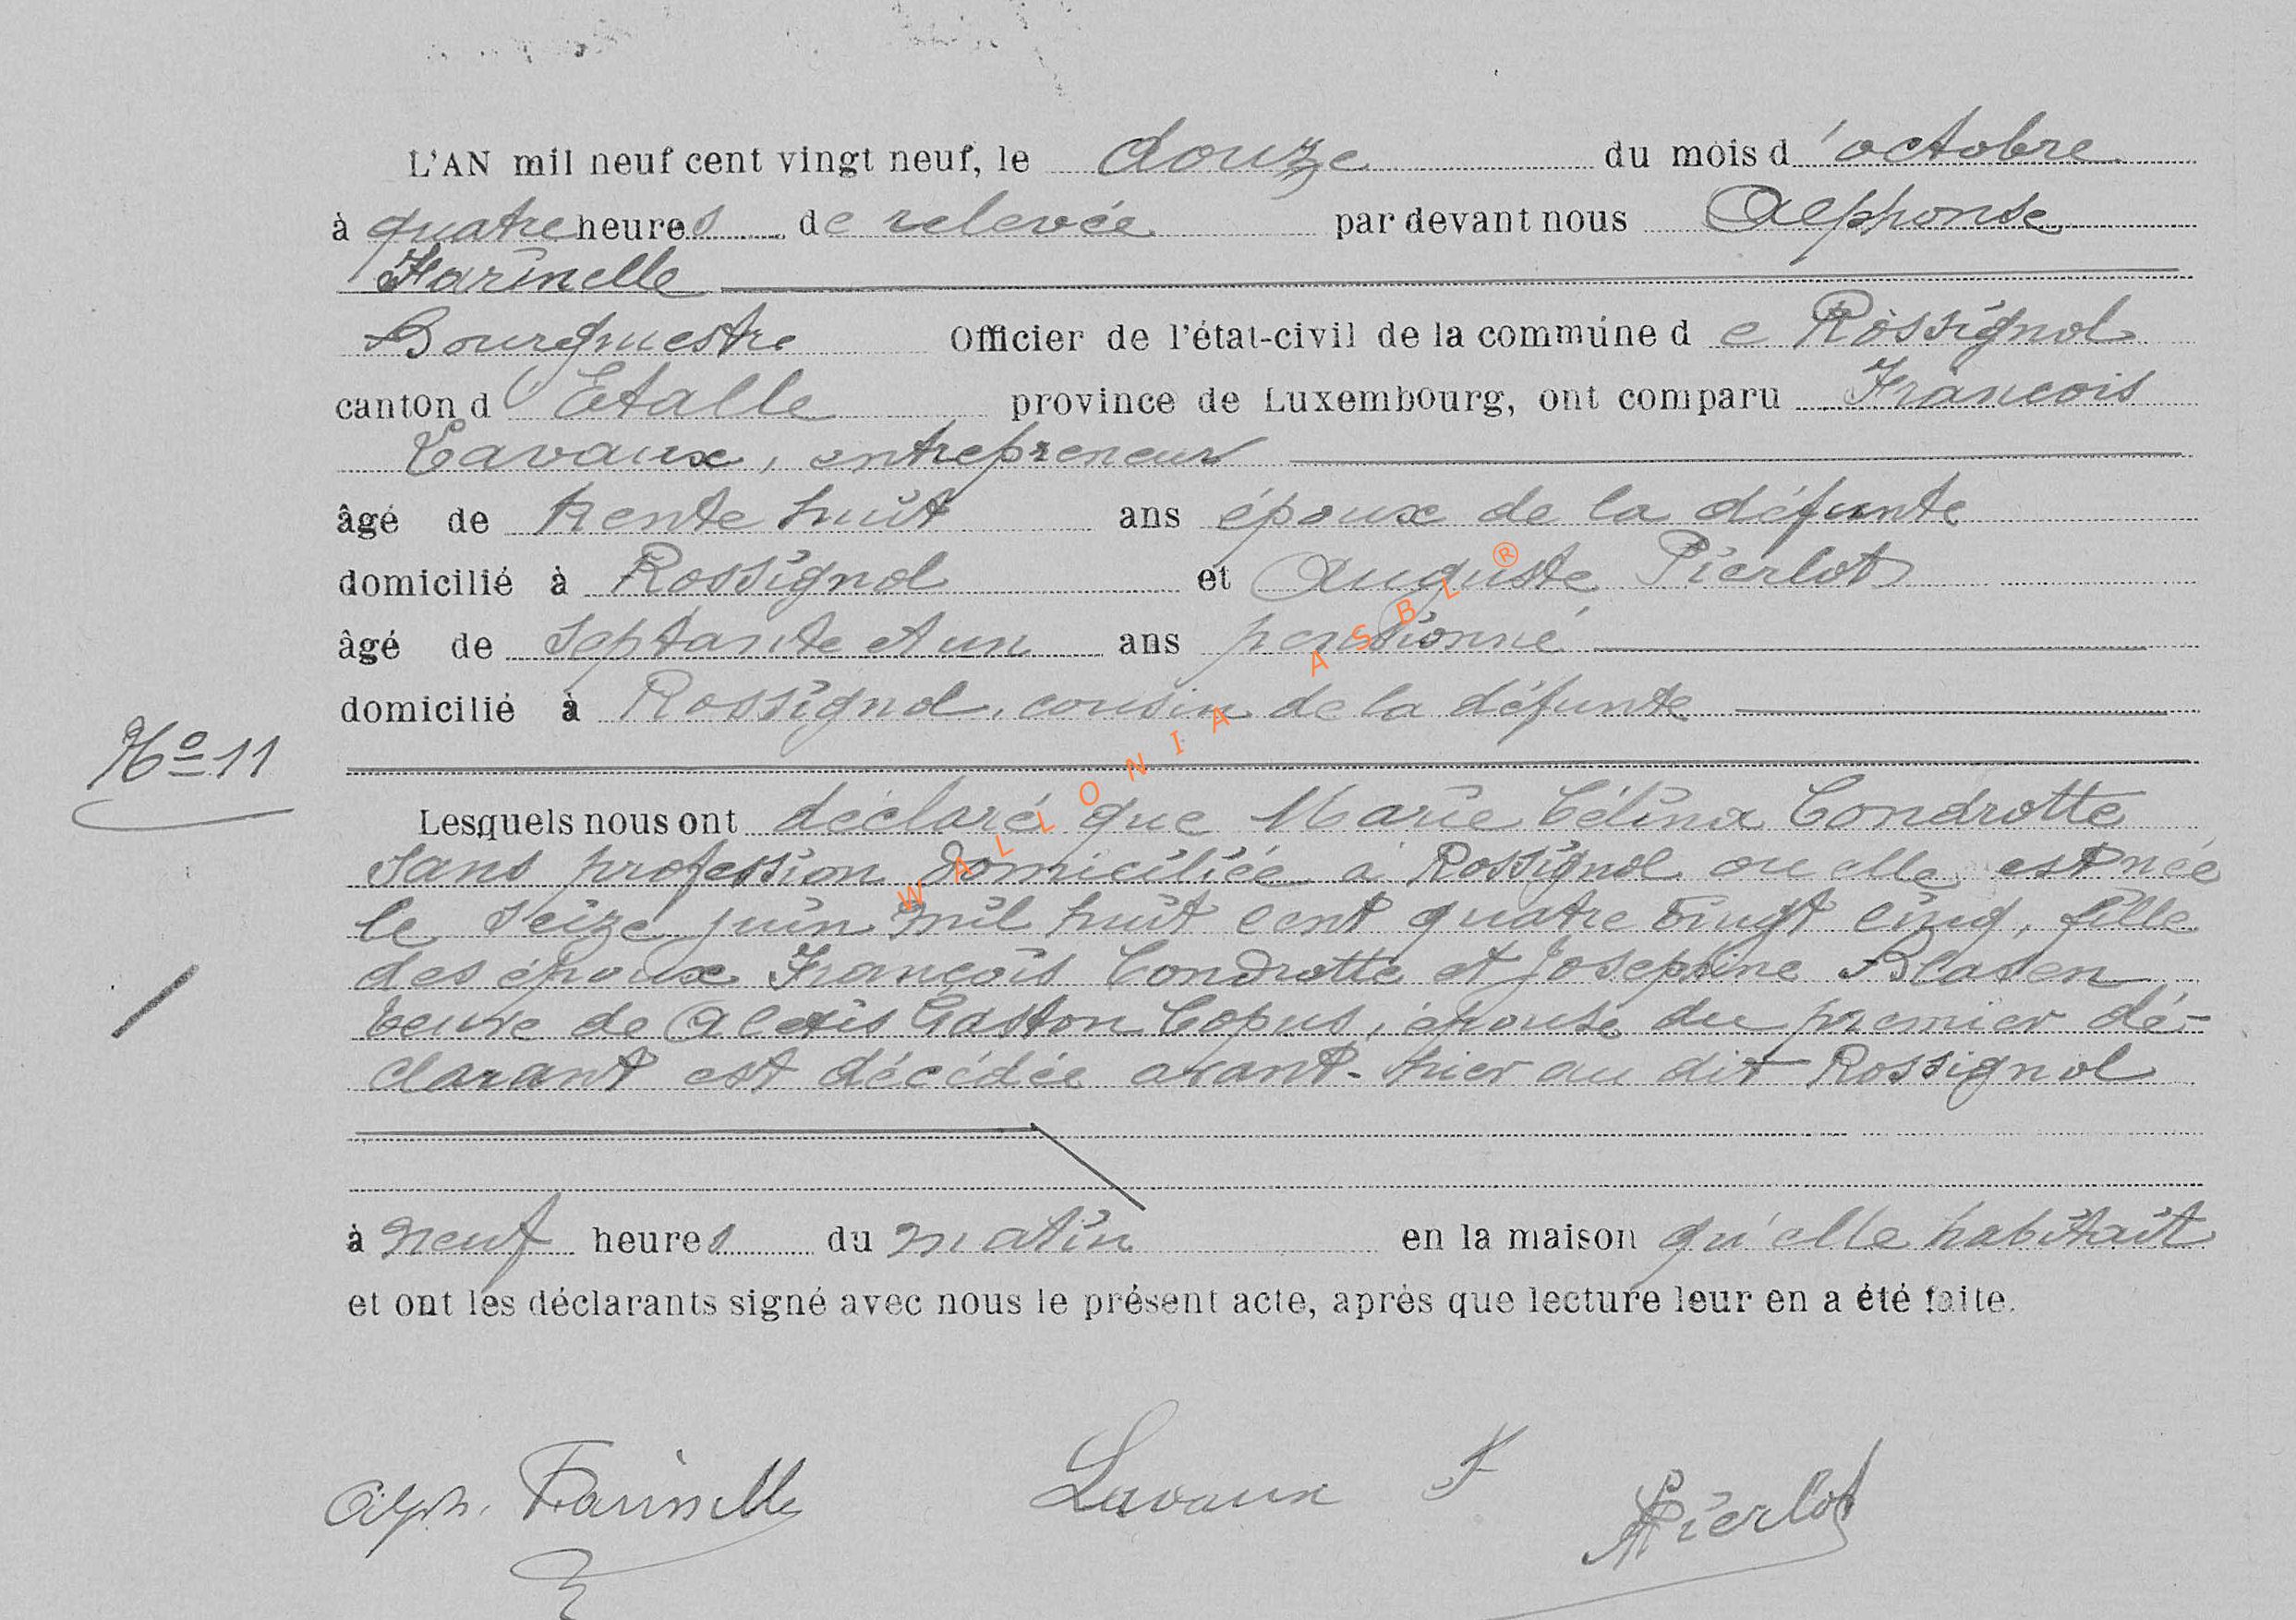 L'AN mil neuf cent vingt neuf, le douze du mois d'octobre
à quatre heures de relevée par devant nous Alphonse
Farinelle
Bourgmestre Officier de l'état-civil de la commune de Rossignol
canton d'Etalle province de Luxembourg, ont comparu François
Lavaux, entrepreneur
âgé de trente huit ans époux de la défunte
domicilié à Rossignol et Auguste Pierlot
âgé de septante et un ans pensionné
domicilié à Rossignol, cousin de la défunte
No 11
Lesquels nous ont déclaré que Marie Célina Condrotte
sans profession domiciliée à Rossignol ou elle est née
le seize juin mil huit cent quatre vingt cinq, fille
des époux François Condrotte et Joséphine Blasen
veuve de Alexis Gaston Copus, épouse du premier dé-
clarant est décédée avant-hier au dit Rossignol
à neuf heures du matin en la maison qu'elle habitait
et ont les déclarants signé avec nous le présent acte, après que lecture leur en a été faite.
Alph. Farinelle Lavaux F APierlot
WALLONIA ASBL ®